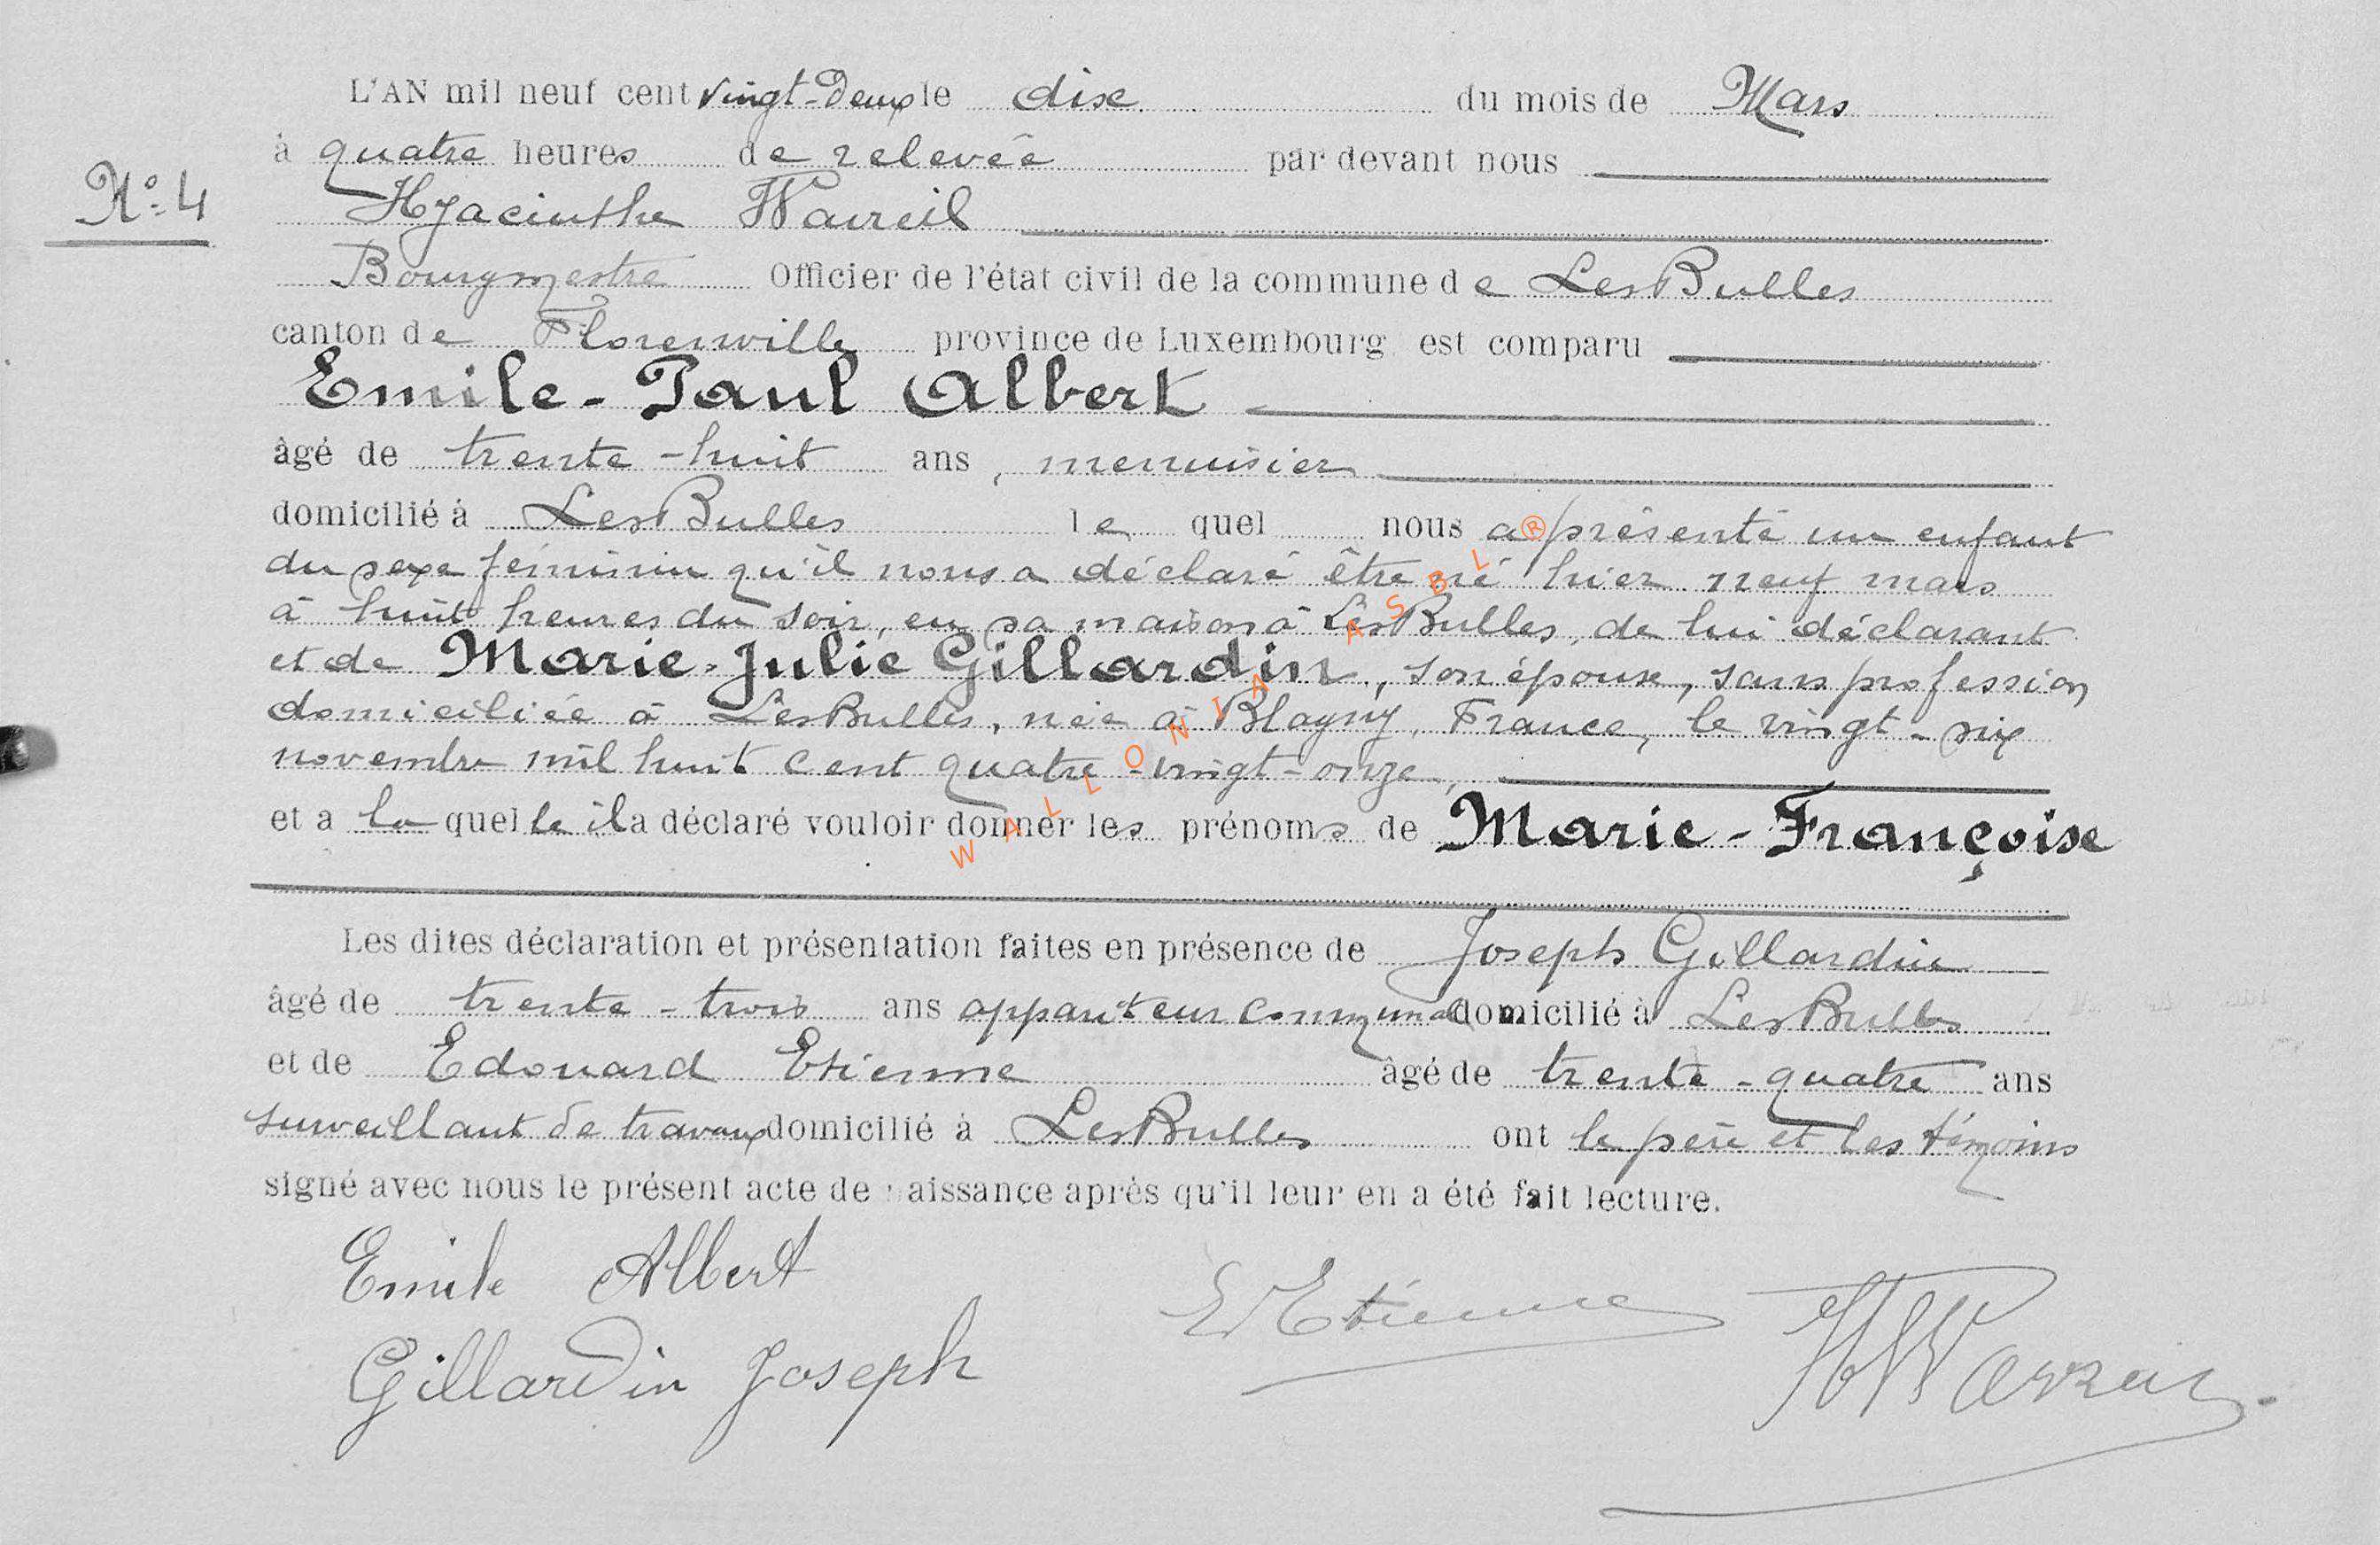 L'AN mil neuf cent vingt-Deux le dix du mois de Mars
à quatre heures de relevée par devant nous
N° 4
Hyacinthe
Bourgmestre Officier de l'état civil de la commune de LesBulles
canton de Florenville province de Luxembourg est comparu
Emile-Paul Albert
âgé de trente-huit ans, menuisier
domicilié à LesBulles lequel nous a présenté un enfant
du sexe féminin qu'il nous a déclaré être né hier neuf mars
à huit heures du soir, en sa maison à LesBulles, de lui déclarant
et de Marie-Julie Gillardin, son épouse, sans profession
domiciliée à LesBulles, née à Blagny, France, le vingt-six
novembre mil huit cent quatre-vingt-onze,
et a laquelle il a déclaré vouloir donner les prénoms de Marie-Françoise
Les dites déclaration et présentation faites en présence de Joseph Gillardin
âgé de trente-trois ans appariteur communal domicilié à LesBulles
et de Edouard Etienne âgé de trente-quatre ans
surveillant de travaux domicilié à LesBulles ont le père et les témoins
signé avec nous le présent acte de naissance après qu'il leur en a été fait lecture.
Emile Albert
E Etienne
Gillardin Joseph
WALLONIA ASBL ®